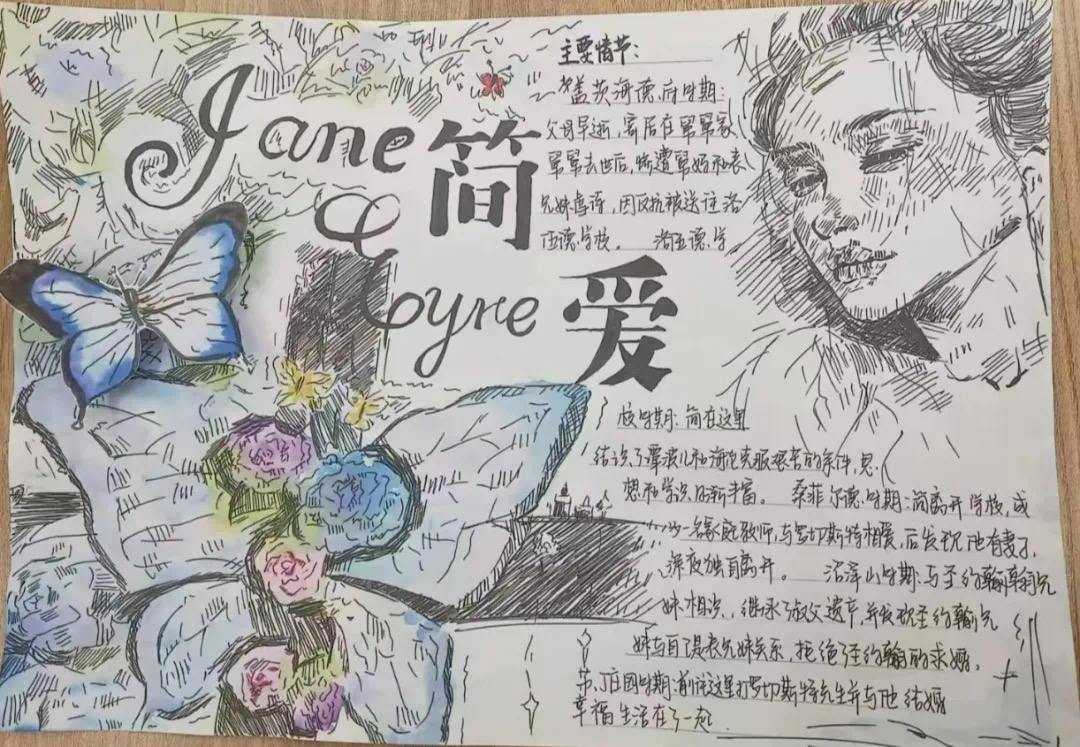 Jane
Eyre
简
爱
主要情节：
盖茨海德府时期：
父母早逝，寄居在舅舅家
舅舅去世后，惨遭舅妈和表
兄妹虐待，因反抗被送往洛
伍德学校。 洛伍德学
校时期：简在这里
结识了覃波儿和海伦克服艰苦的条件，思
想和学识日渐丰富。 桑菲尔德时期：简离开学校，成
为一名家庭教师，与罗切斯特相爱，后发现他有妻子，
深夜独自离开。 沼泽山时期：与圣约翰兄
妹相识，继承了叔父遗产，并发现圣约翰兄
妹与自己是表兄妹关系，拒绝圣约翰的求婚。
庄园时期：前往这里找罗切斯特先生并与他结婚
幸福生活在了一起